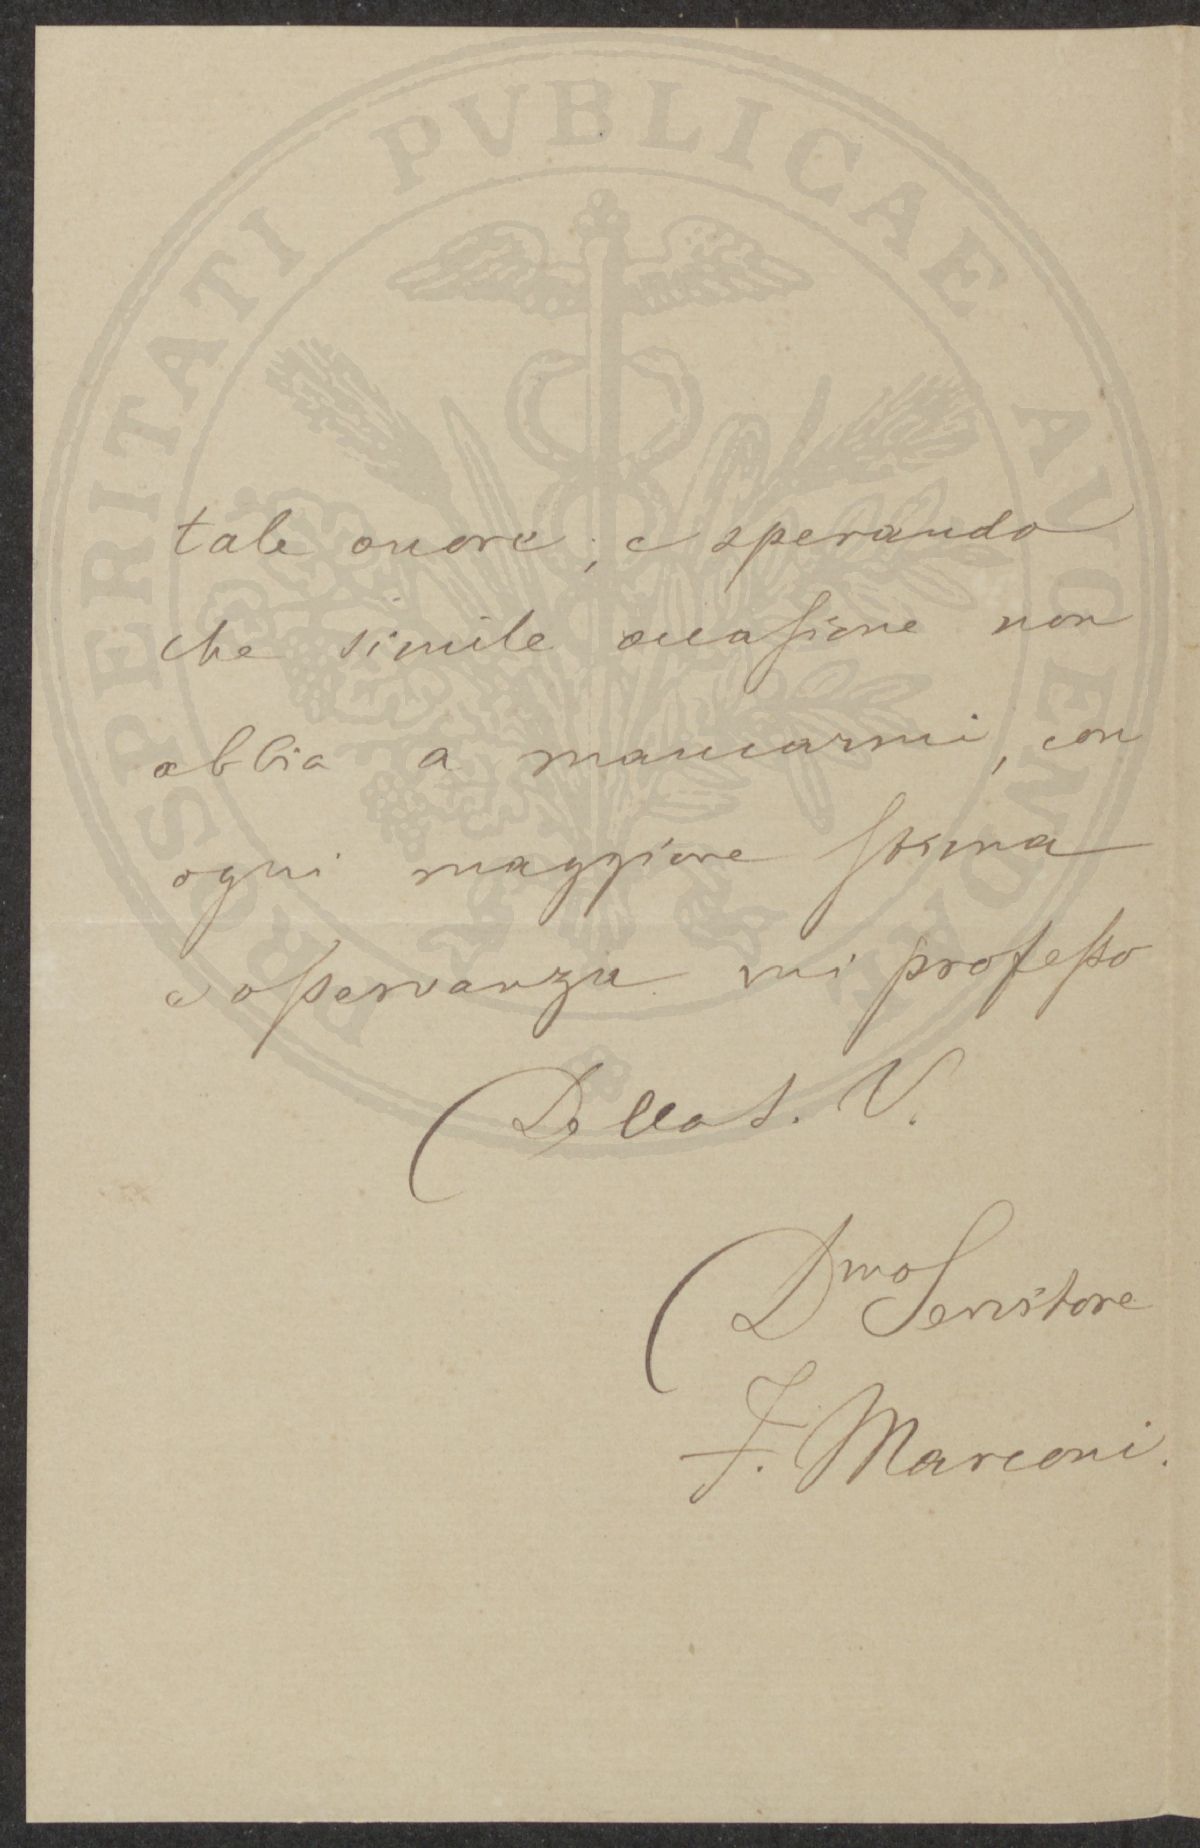 PROSPERITATI PVBLICAE AVGENDAE
tale onore; e sperando
che simile occasione non
abbia a mancarmi, con
ogni maggiore stima
e osservanza mi professo
Della S. V.
Dmo Servitore
F. Marconi.